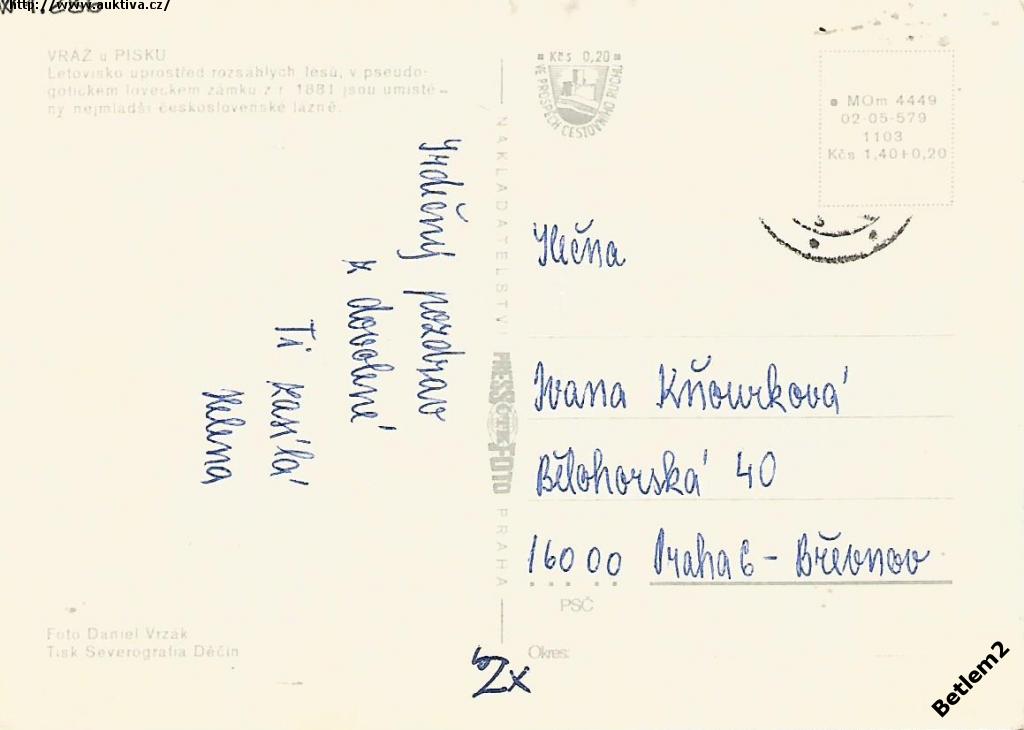 http://www.auktiva.cz/
VRÁŽ u PÍSKU
Letovisko uprostřed rozsáhlých lesů, v pseudo-
gotickém loveckém zámku z r. 1881 jsou umístě-
ny nejmladší československé lázně.
Kčs 0,20
VE PROSPĚCH CESTOVNÍHO RUCHU
MOm 4449
02-05-579
1103
Kčs 1,40+0,20
Srdečný pozdrav
z dovolené
Ti zasílá
Helena
NAKLADATELSTVÍ
PRESSFOTO
PRAHA
Slečna
Ivana Kňourková
Bělohorská 40
160 00 Praha 6 - Břevnov
PSČ
Okres:
Foto Daniel Vrzák
Tisk Severografia Děčín
2x
Betlem2